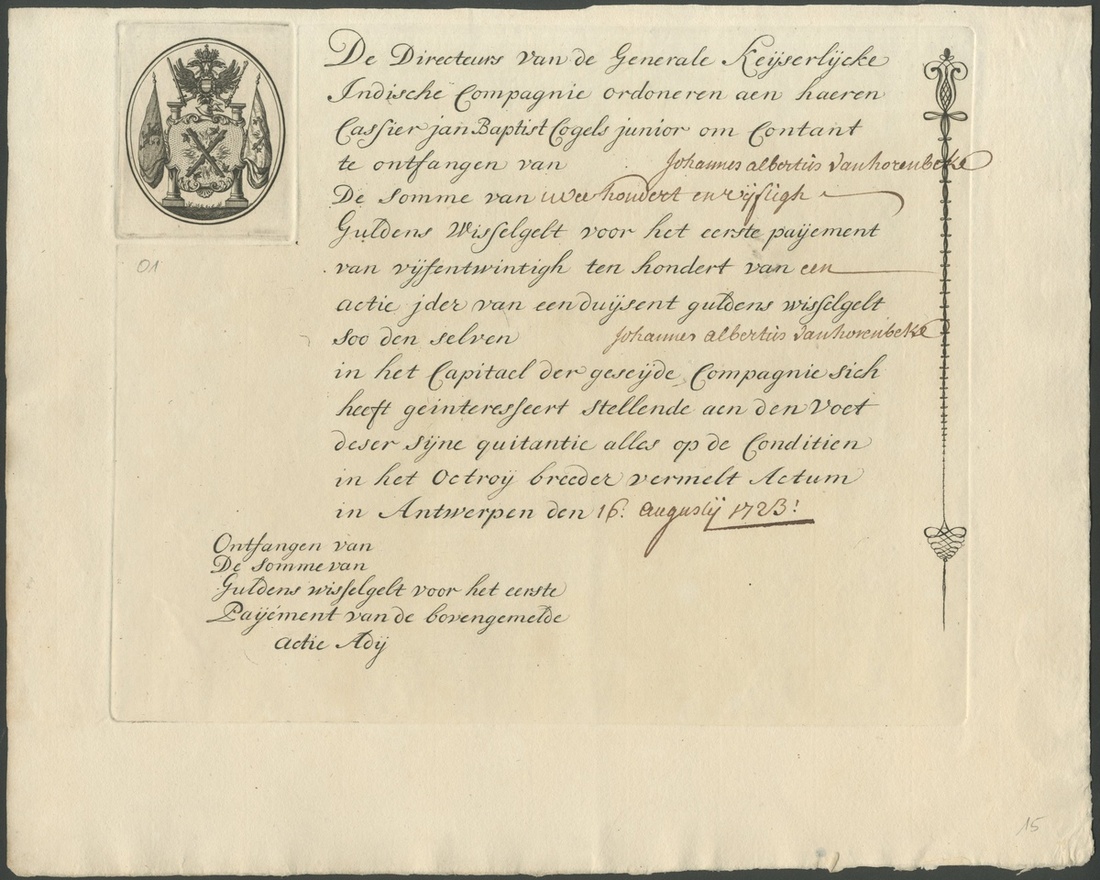 De Directeurs van de Generale Keÿserlÿcke
Indische Compagnie ordoneren aen haeren
Cassier jan Baptist Cogels junior om Contant
te ontfangen van Johannes albertus Vanhorenbeke
De Somme van twee hondert en vijftigh
Guldens Wisselgelt voor het eerste paÿement
van vÿfentwintigh ten hondert van een
actie jder van een duÿsent guldens wisselgelt
soo den selven Johannes albertus Vanhorenbeke
in het Capitael der geseÿde Compagnie sich
heeft geinteresseert stellende aen den Voet
deser sÿne quitantie alles op de Conditien
in het Octroÿ breeder vermelt Actum
in Antwerpen den 16: augustij 1723:
Ontfangen van
De Somme van
Guldens wisselgelt voor het eerste
Paÿement van de bovengemelde
actie Adÿ
01
15